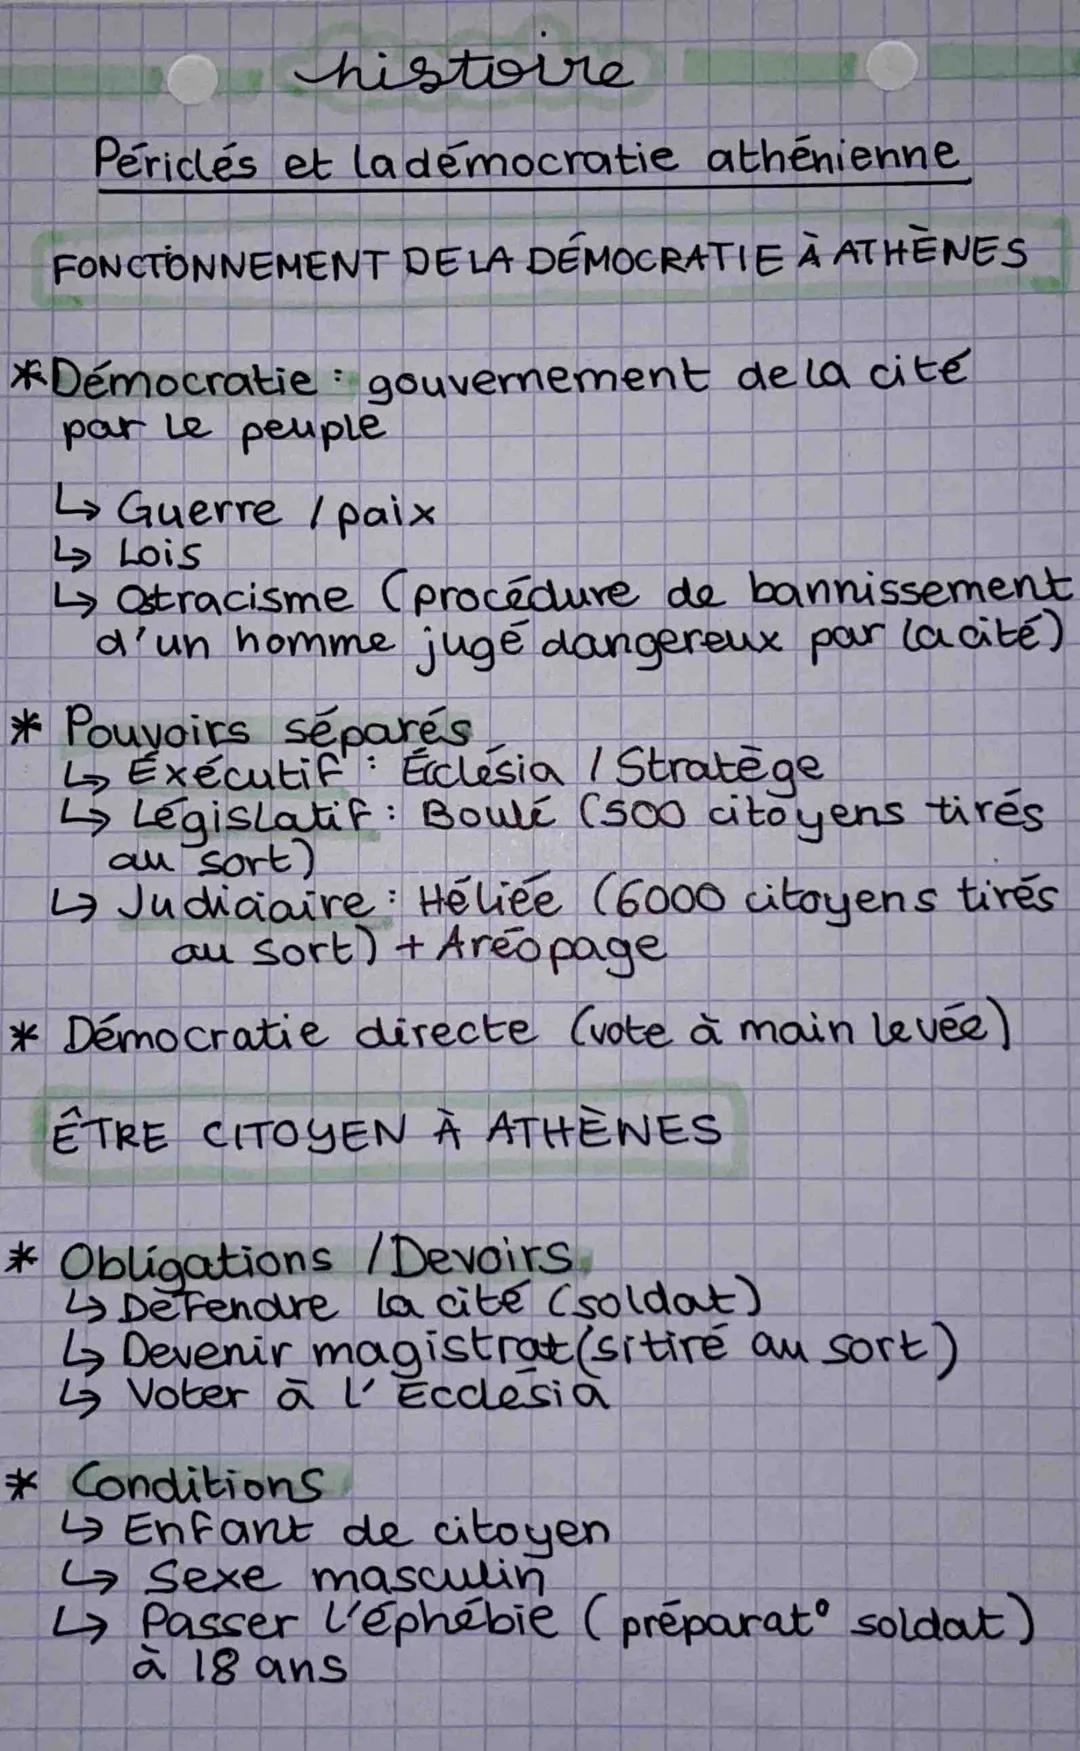 histoire
Périclés et la démocratie athénienne
FONCTIONNEMENT DE LA DÉMOCRATIE À ATHÈNES
* Démocratie : gouvernement de la cité
par le peuple
↳ Guerre / paix
↳ Lois
↳ Ostracisme (procédure de bannissement
d'un homme jugé dangereux par la cité)
* Pouvoirs séparés
↳ Éxécutif : Écclésia / Stratège
↳ Législatif : Boulé (500 citoyens tirés
au sort)
↳ Judiciaire : Héliée (6000 citoyens tirés
au sort) + Aréopage
* Démocratie directe (vote à main levée)
ÊTRE CITOYEN À ATHÈNES
* Obligations / Devoirs
↳ Défendre la cité (soldat)
↳ Devenir magistrat (si tiré au sort)
↳ Voter à l'Écclésia
* Conditions
↳ Enfant de citoyen
↳ Sexe masculin
↳ Passer l'éphébie (préparat° soldat)
à 18 ans